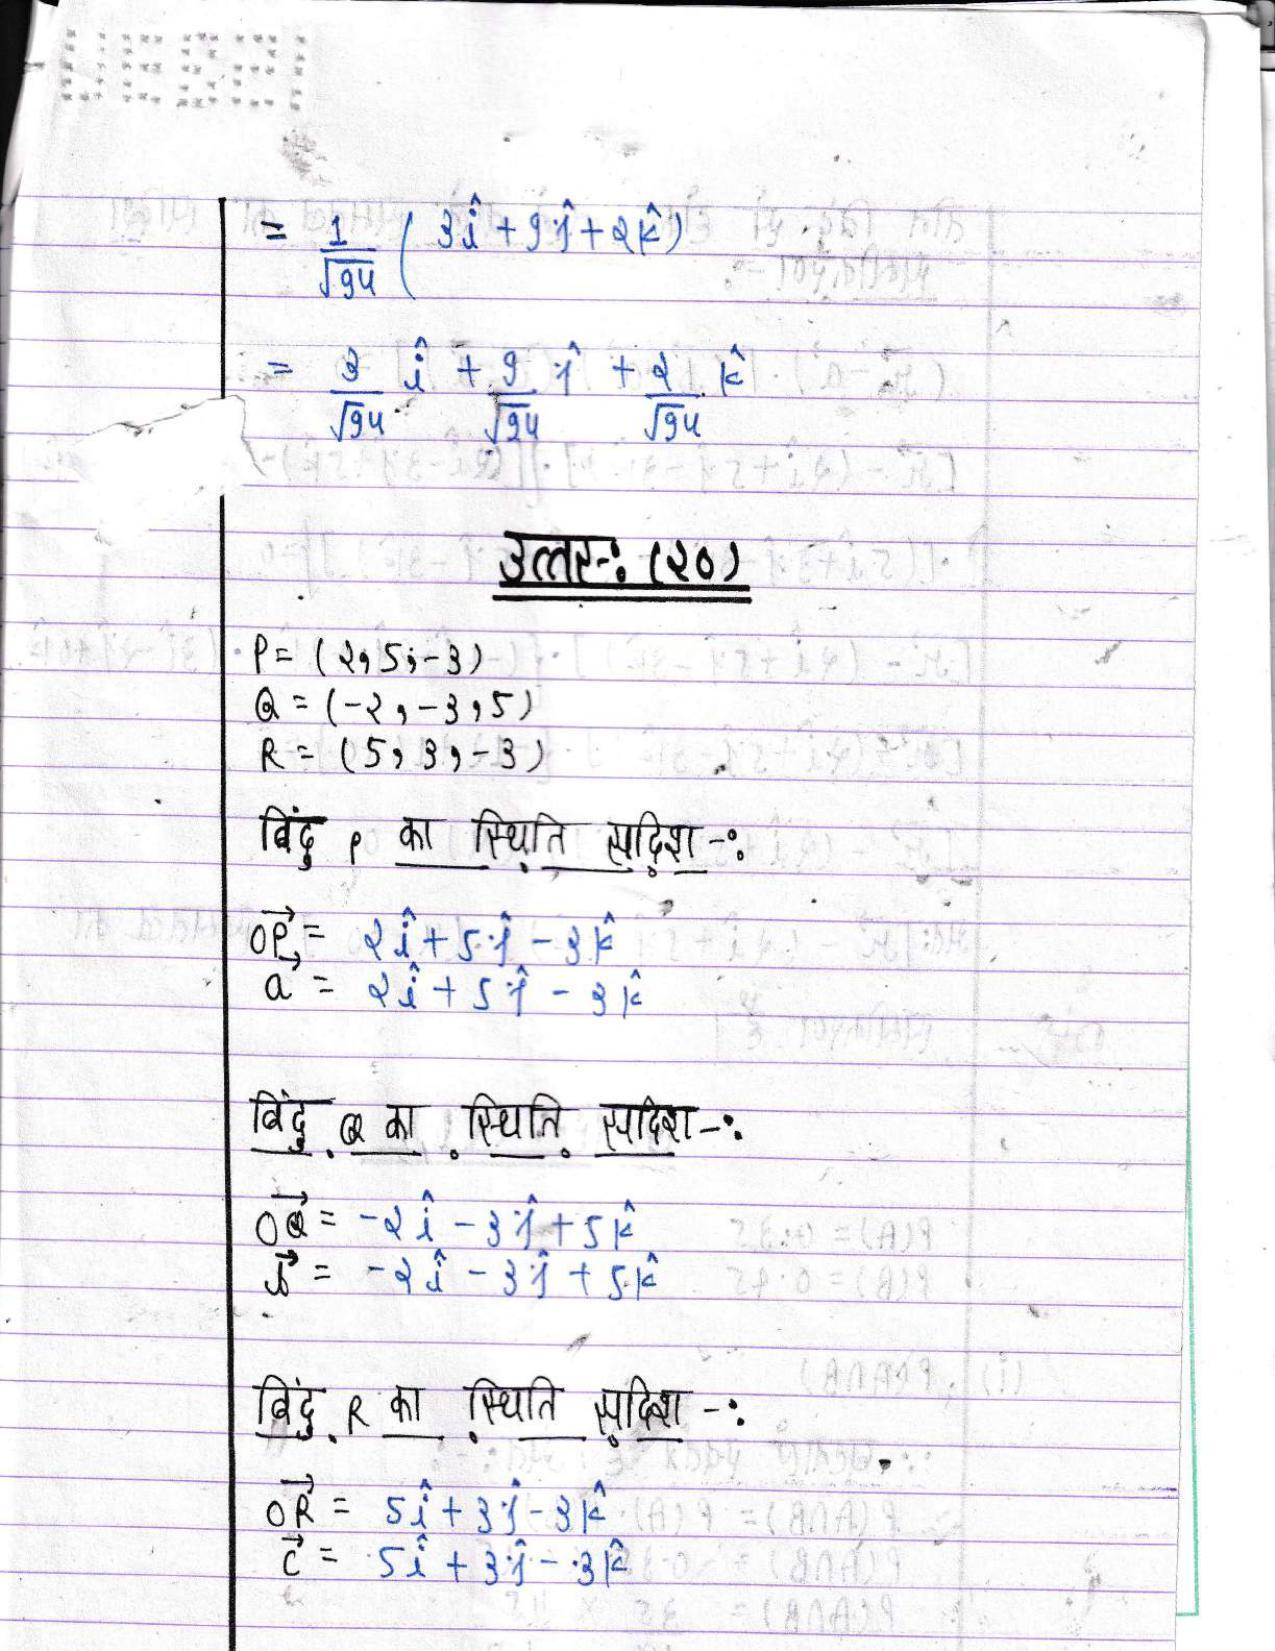 = 1/√94 ( 3î + 9ĵ + 2k̂)
= 3/√94 î + 9/√94 ĵ + 2/√94 k̂
उत्तर-: (२०)
P = (2, 5, -3)
Q = (-2, -3, 5)
R = (5, 3, -3)
बिंदु P का स्थिति सदिश -:
OP⃗ = 2î + 5ĵ - 3k̂
a⃗ = 2î + 5ĵ - 3k̂
बिंदु Q का स्थिति सदिश -:
OQ⃗ = -2î - 3ĵ + 5k̂
b⃗ = -2î - 3ĵ + 5k̂
बिंदु R का स्थिति सदिश -:
OR⃗ = 5î + 3ĵ - 3k̂
c⃗ = 5î + 3ĵ - 3k̂